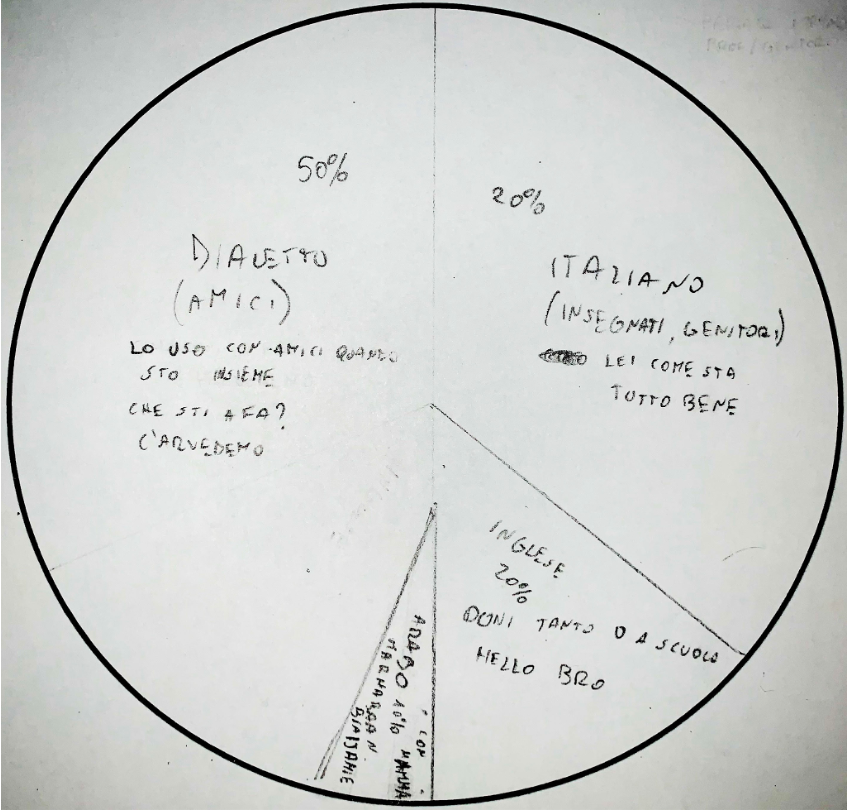 50%
DIALETTO
(AMICI)
LO USO CON AMICI QUANDO
STO INSIEME
CHE STI A FA?
C'ARVEDEMO
20%
ITALIANO
(INSEGNATI, GENITORI)
LEI COME STA
TUTTO BENE
INGLESE
20%
OGNI TANTO O A SCUOLA
HELLO BRO
ARABO 10% MAMMA
CON